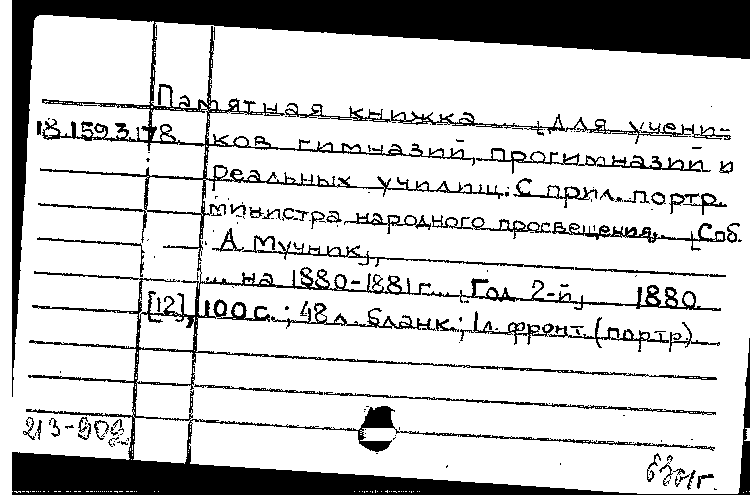 Памятная книжка ... [Для учени-
18.159.3.178. ков гимназий, прогимназий и
реальных училищ. С прил. портр.
министра народного просвещения. [Спб.
А. Мучник],
... на 1880-1881 г. . [Год 2-й] 1880
[12], 100 с. ; 48 л. бланк. ; 1 л. фронт. (портр)
213-